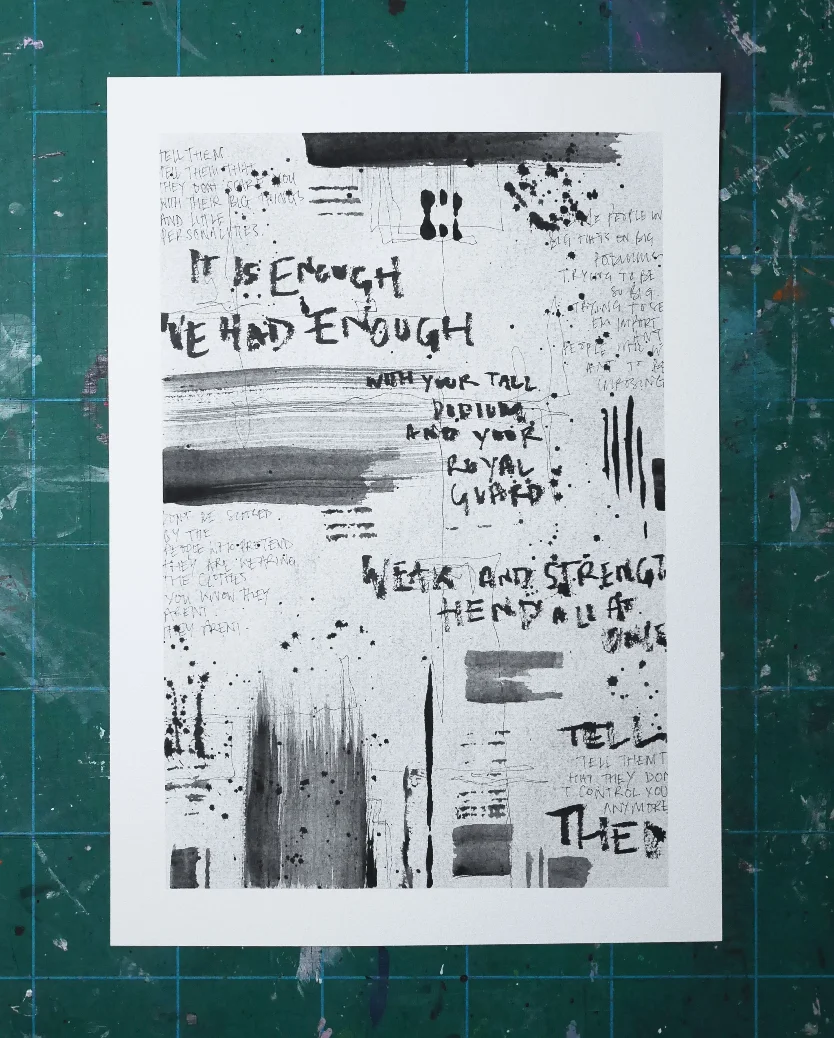 TELL THEM
TELL THEM THAT
THEY DONT SCARE YOU
WITH THEIR BIG THINGS
AND LITTLE
PERSONALITIES.
PEOPLE IN
BIG ON BIG
PODIUMS
TRYING TO BE
SO BIG
TRYING TO SE
EM IMPORT
ANT
PEOPLE WHO W
ANT TO BE
IMPOSING
IT IS ENOUGH
WE HAD ENOUGH
WITH YOUR TALL
PODIUM
AND YOUR
ROYAL
GUARD
DONT BE SCARED
BY THE
PEOPLE WHO PRETEND
THEY ARE WEARING
THE CLOTHES
YOU KNOW THEY
ARENT.
THEY ARENT.
WEAK AND STRENGT
HEND ALL AT
ONE
TELL
TELL THEM T
HAT THEY DON
T CONTROL YOU
ANYMORE
THEM